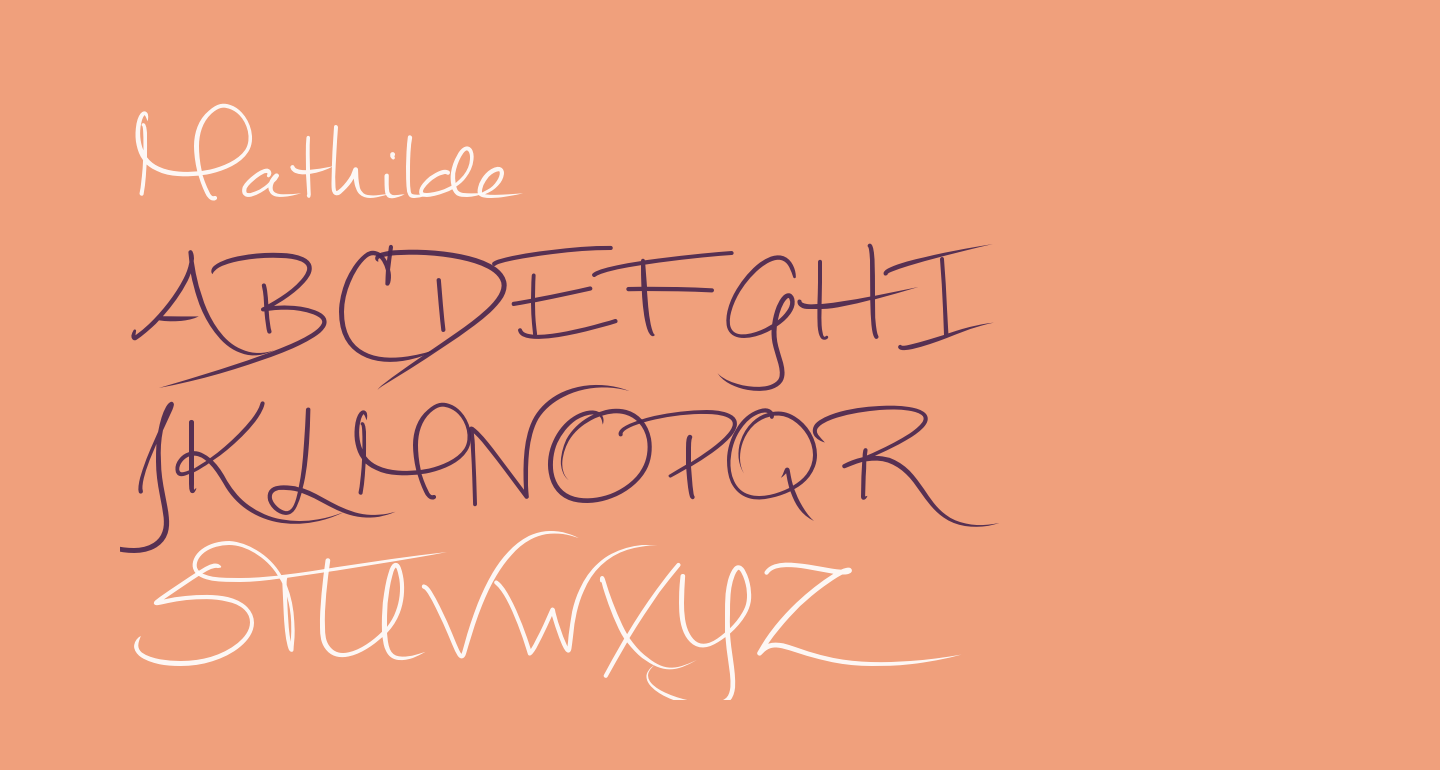 Mathilde
ABCDEFGHI
JKLMNOPQR
STUVWXYZ